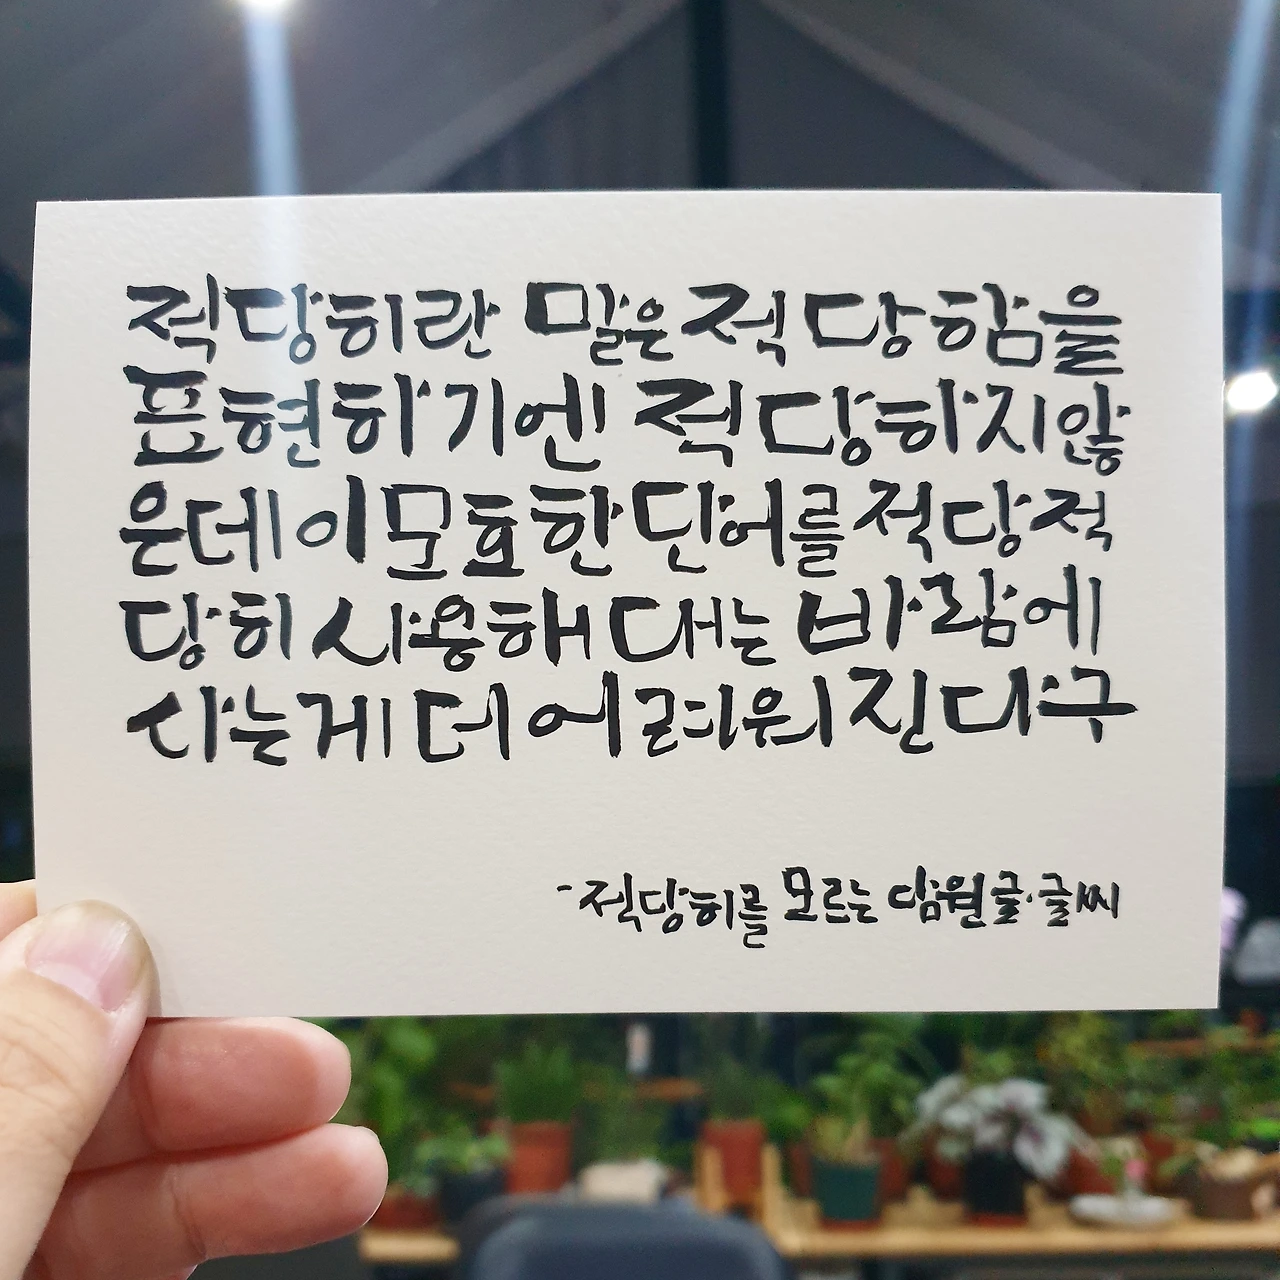 적당히란 말은 적당함을
표현하기엔 적당하지않
은데 이 모호한 단어를 적당적
당히 사용해 대는 바람에
사는게 더 어려워진다구
- 적당히를 모르는 담원 글·글씨